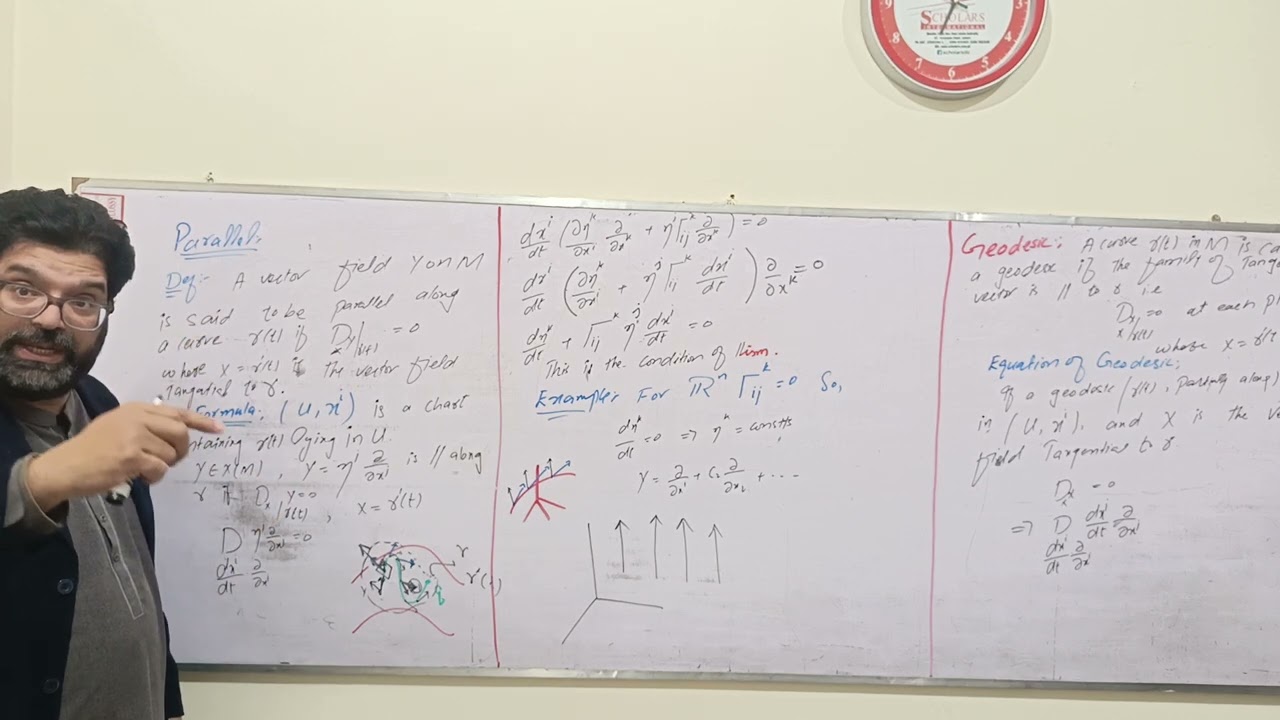 SCHOLARS
INTERNATIONAL
9
3
8
4
7
6
5
Parallel:
Def:- A vector field Y on M
is said to be parallel along
a curve r(t) if D_X Y|_{r(t)} = 0
whose X = r'(t) is the vector field
Tangatial to r.
Formula: (U, x^i) is a chart
ntaining r(t) lying in U.
Y ∈ X(M), Y = η^i ∂/∂x^i is // along
r if D_X Y = 0 /r(t), X = r'(t)
D η^i ∂/∂x^i = 0
dx^i/dt ∂/∂x^i
r
dx^i/dt (∂η^k/∂x^i ∂/∂x^k + η^j Γ_ij^k ∂/∂x^k) = 0
dx^i/dt (∂η^k/∂x^i + η^j Γ_ij^k dx^i/dt) ∂/∂x^k = 0
dη^k/dt + Γ_ij^k η^j dx^i/dt = 0
This is the condition of //ism.
Example: For R^n Γ_ij^k = 0 So,
dη^k/dt = 0 => η^k = consts
Y = ∂/∂x^1 + C_2 ∂/∂x_2 + ....
Geodesic: A curve r(t) in M is ca
a geodesc if the family of Tange
vector is // to r i.e
D_X X|_{r(t)} = 0 at each p
whose X = r'(t
Equation of Geodesic:
If a geodesic r(t), along
in (U, x^i), and X is the v
field Tangential to r.
D_X X = 0
=> D dx^i/dt ∂/∂x^i
dx^i/dt ∂/∂x^i